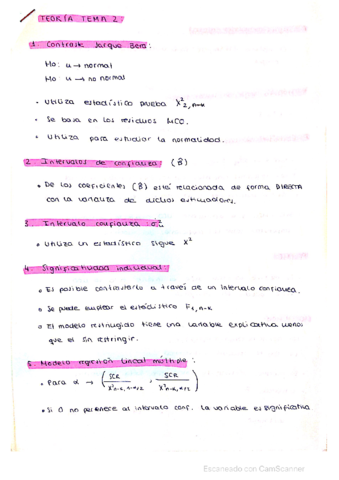 TEORÍA TEMA 2
1. Contraste Jarque Bera:
Ho: u → normal
Ho: u → no normal
• Utiliza estadístico prueba χ²
• Se basa en los residuos MCO.
• Utiliza para estudiar la normalidad.
2. Intervalos de confianza (β̂)
• De los coeficientes (β̂) está relacionada de forma DIRECTA
con la varianza de dichos estimadores.
3. Intervalo confianza σ²:
• Utiliza un estadístico sigue χ²
4. Significatividad individual:
• Es posible contrastarlo a través de un intervalo confianza.
• Se puede emplear el estadístico F1, n-k
• El modelo restringido tiene una variable explicativa menos
que el sin restringir.
5. Modelo regresión lineal múltiple:
• Para α → (SCR / χ² , SCR / χ²)
• Si 0 no pertenece al intervalo conf. la variable es significativa
Escaneado con CamScanner